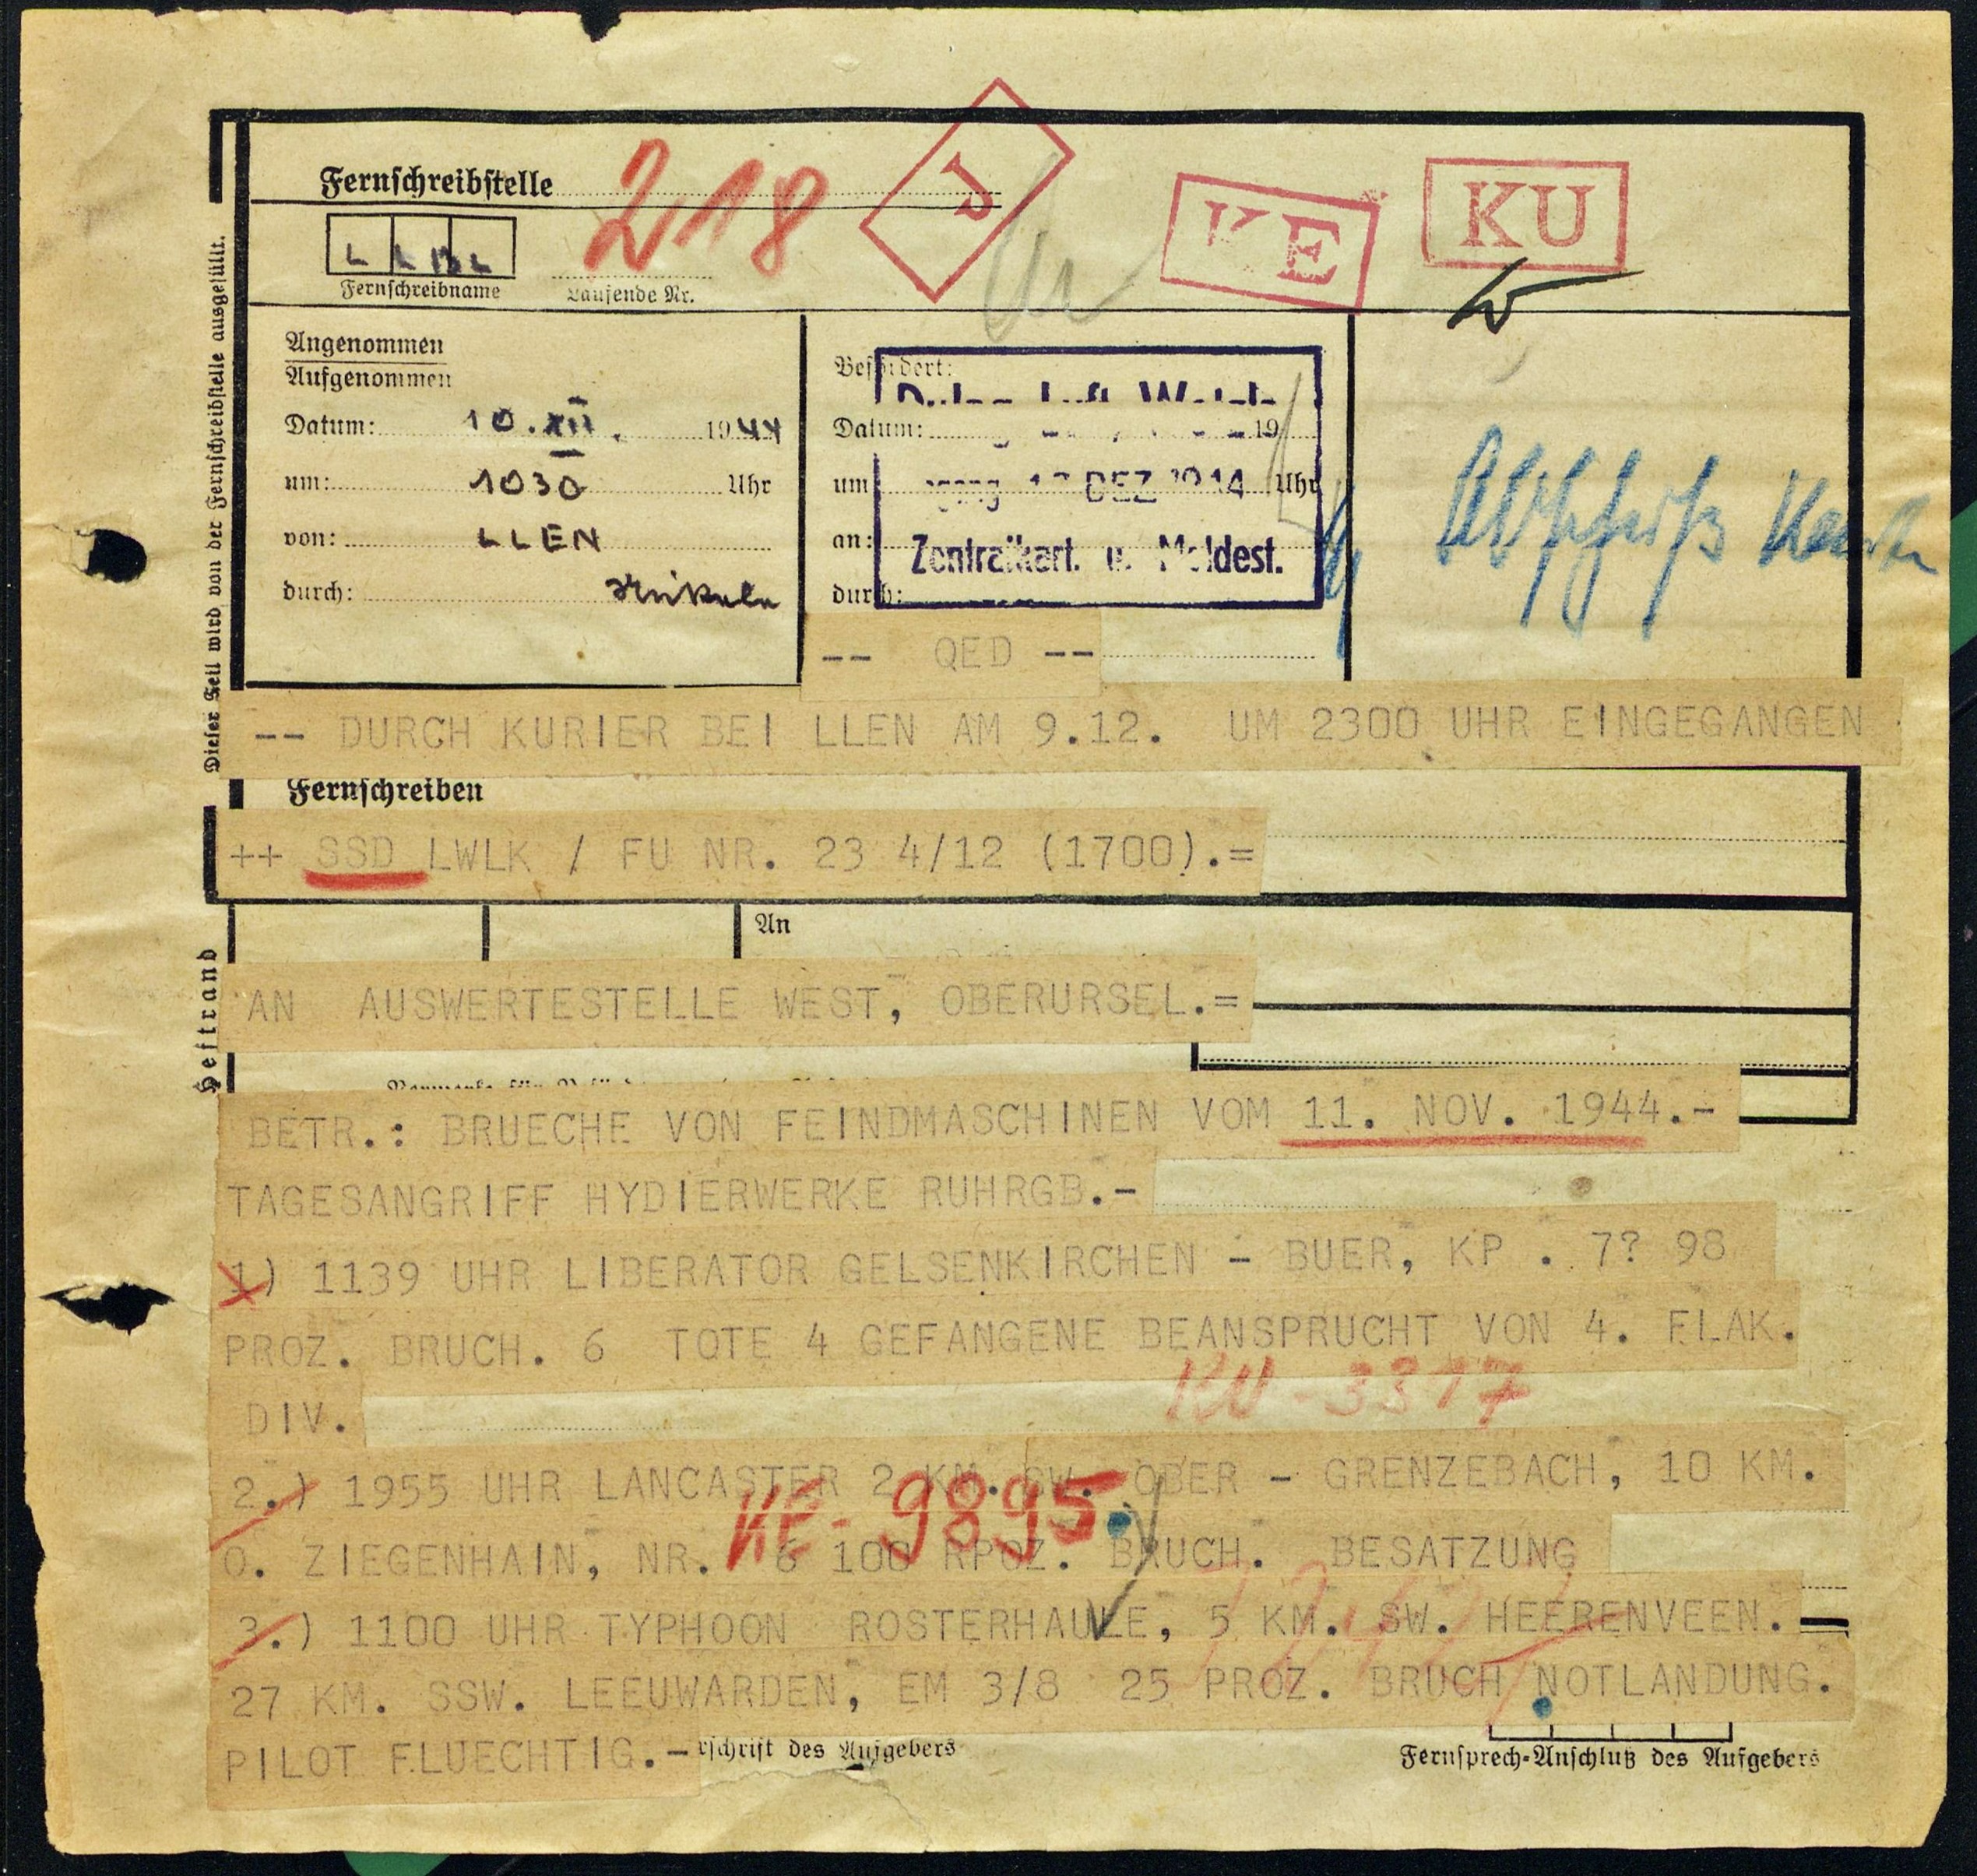 Fernschreibstelle
218
J
KE
KU
L L B L
Fernschreibname
Laufende Nr.
Angenommen
Aufgenommen
Datum: 10.XII. 1944
um: 1030 Uhr
von: LLEN
durch:
Befördert:
Datum: 19
um Uhr
an:
durch:
DEZ
Zentralkart. u. Meldest.
Dieser Teil wird von der Fernschreibstelle ausgefüllt.
-- QED --
-- DURCH KURIER BEI LLEN AM 9.12. UM 2300 UHR EINGEGANGEN
Fernschreiben
++ SSD LWLK / FU NR. 23 4/12 (1700).=
An
Heftrand
AN AUSWERTESTELLE WEST, OBERURSEL.=
BETR.: BRUECHE VON FEINDMASCHINEN VOM 11. NOV. 1944.-
TAGESANGRIFF HYDIERWERKE RUHRGB.-
1) 1139 UHR LIBERATOR GELSENKIRCHEN - BUER, KP . 7? 98
PROZ. BRUCH. 6 TOTE 4 GEFANGENE BEANSPRUCHT VON 4. FLAK.
KU-3317
DIV.
2.) 1955 UHR LANCASTER 2 KM. SW. OBER - GRENZEBACH, 10 KM.
KE-9895
O. ZIEGENHAIN, NR. 6 100 RPOZ. BRUCH. BESATZUNG
3.) 1100 UHR TYPHOON ROSTERHAULE, 5 KM. SW. HEERENVEEN.
27 KM. SSW. LEEUWARDEN, EM 3/8 25 PROZ. BRUCH NOTLANDUNG.
PILOT FLUECHTIG.-
rschrift des Aufgebers
Fernsprech-Anschluß des Aufgebers